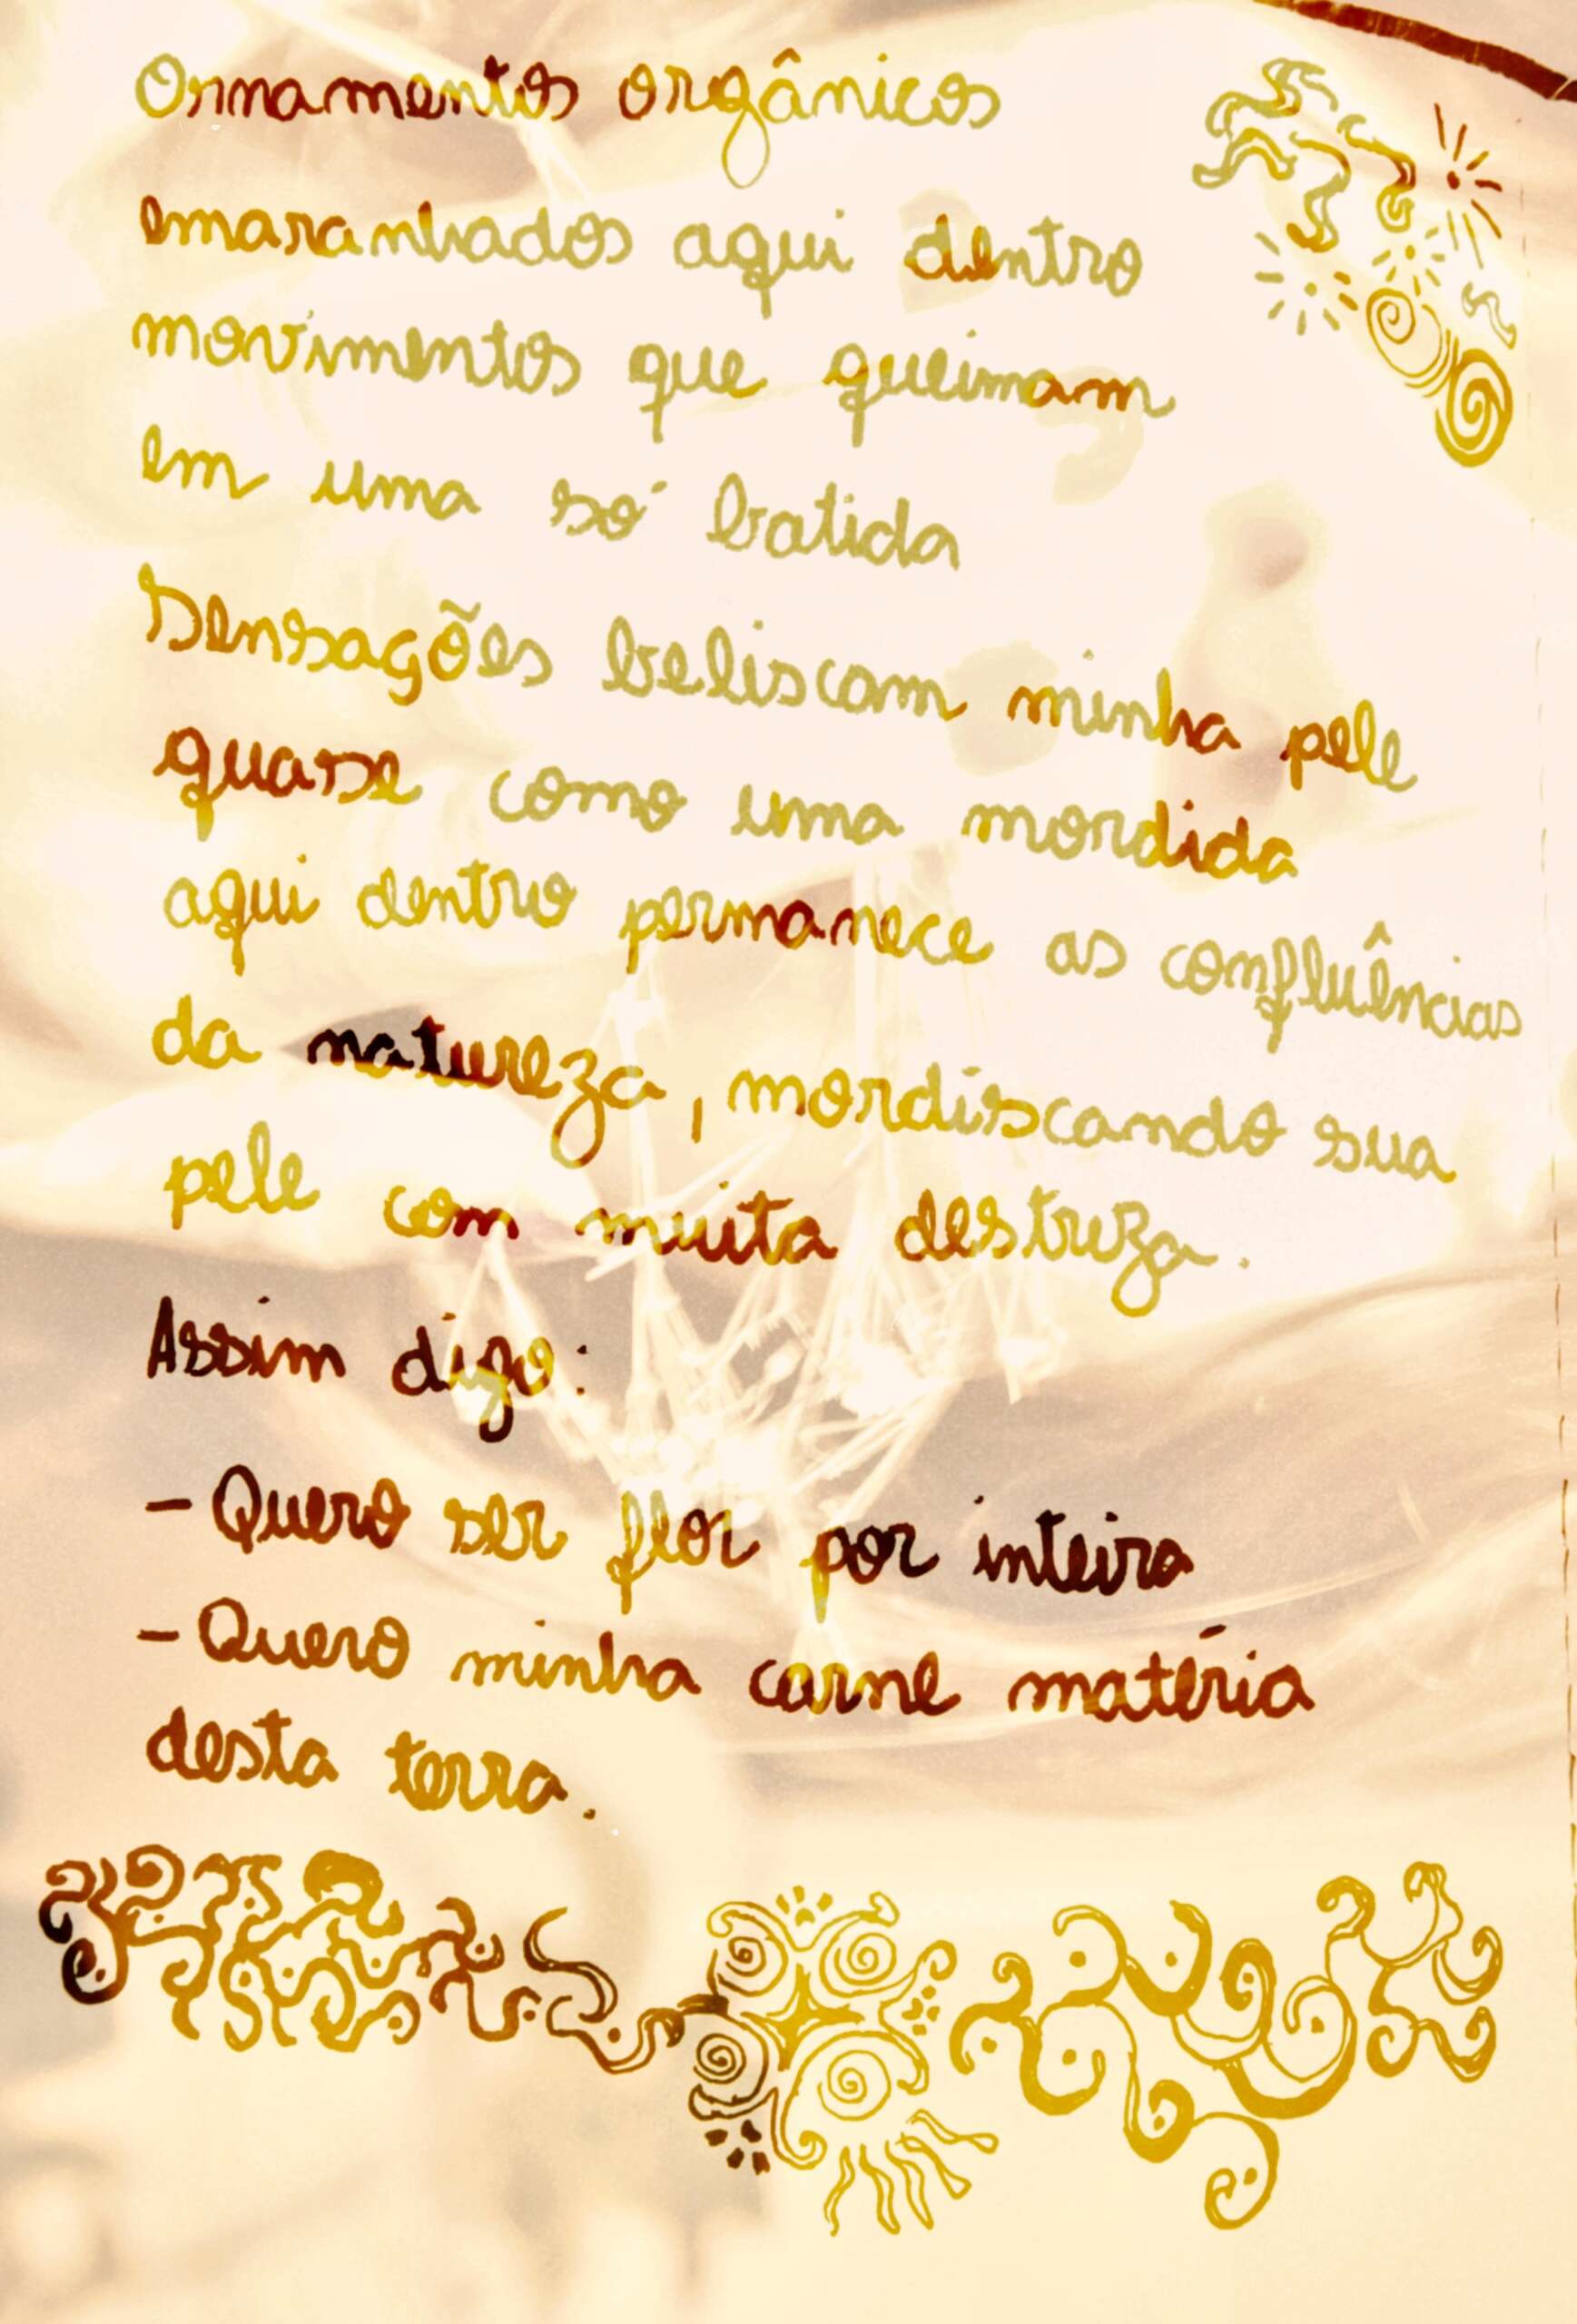 Ornamentos orgânicos
emaranhados aqui dentro
movimentos que queimam
em uma só batida
Sensações beliscam minha pele
quase como uma mordida
aqui dentro permanece as confluências
da natureza, mordiscando sua
pele com muita destreza.
Assim digo:
- Quero ser flor por inteira
- Quero minha carne matéria
desta terra.